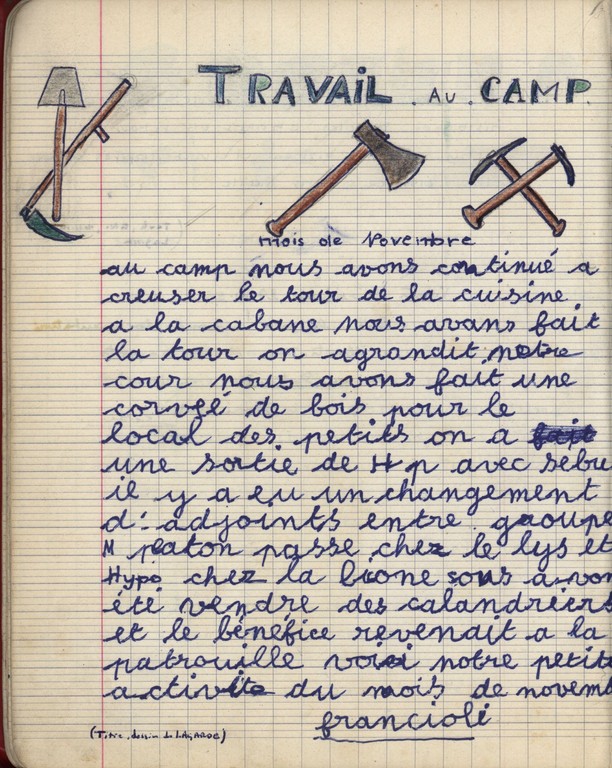 TRAVAIL. AU. CAMP
mois de Novembre
au camp nous avons continué a
creuser le tour de la cuisine
a la cabane nous avans fait
la tour on agrandit notre
cour nous avons fait une
corvéé de bois pour le
local des petits on a fait
une sortie de H p avec sebu
il y a eu un changement
d'adjoints entre groupe
M peaton passe chez le lys et
Hypo chez la lione sous avon
été vendre des calandriers
et le bénéfice revenait a la
patrouille voici notre petite
activite du mois de novemb
francioli
(Titre, dessin de LAGARDE)